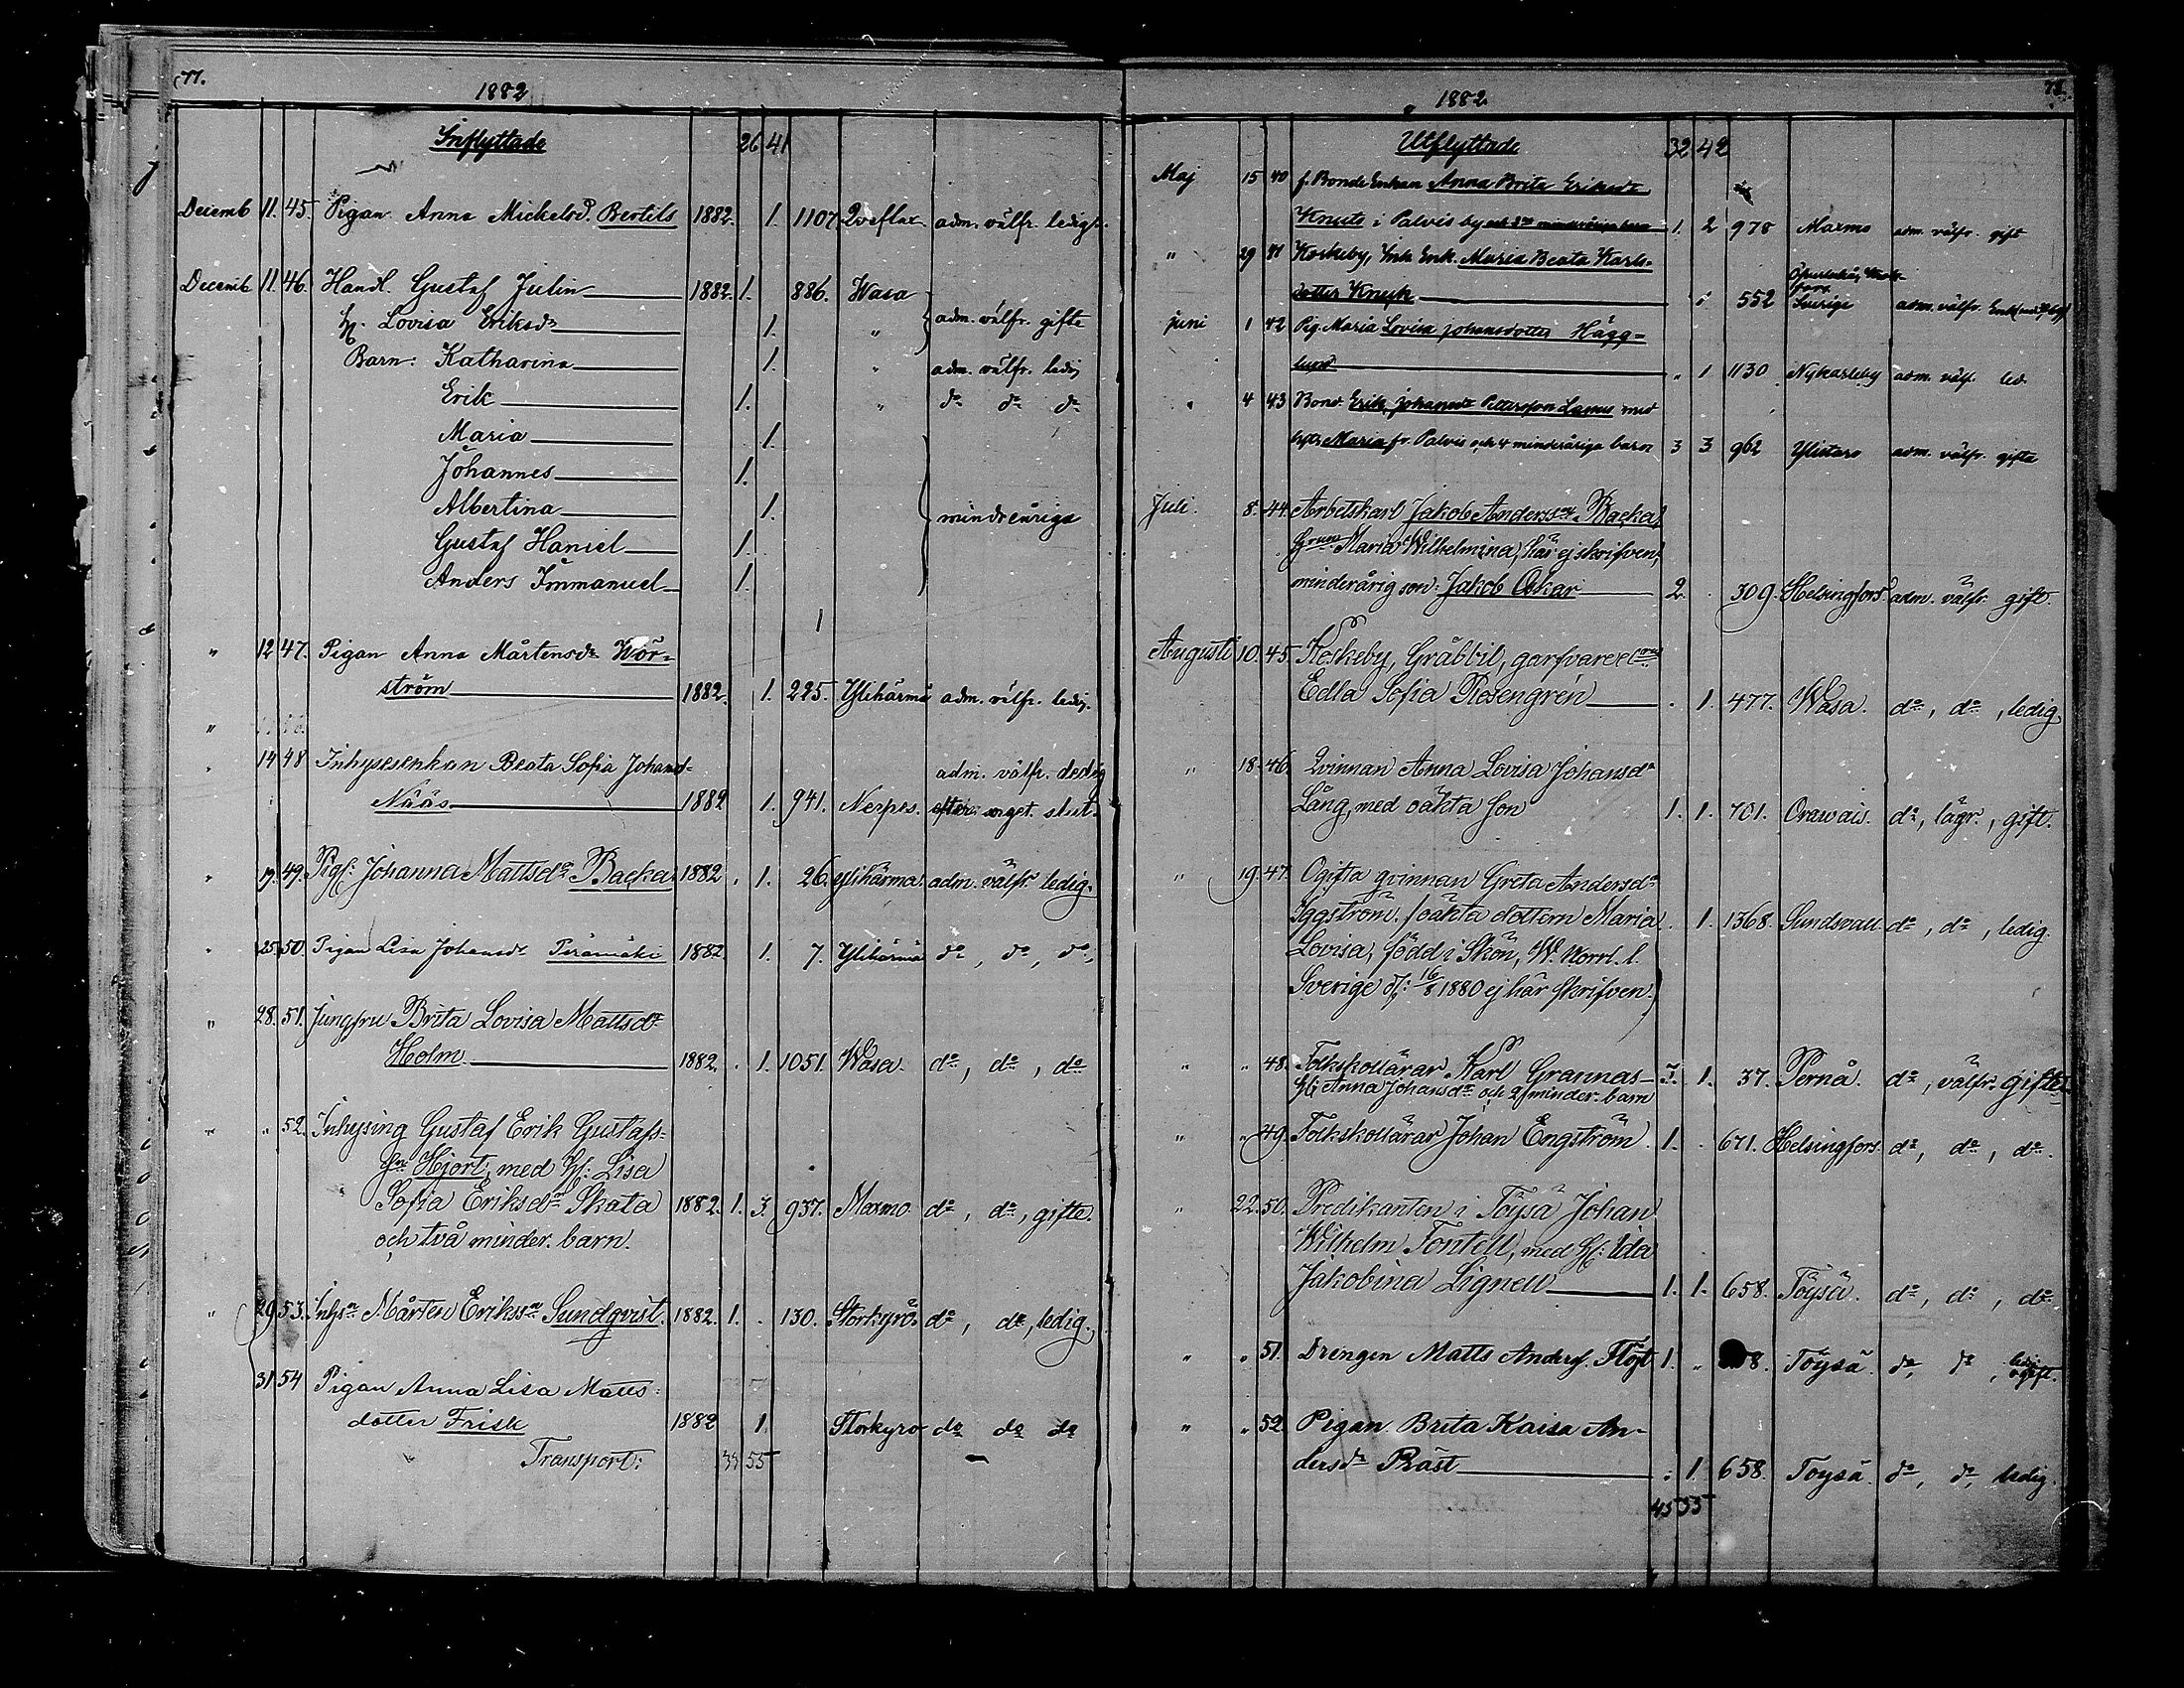 77.
1882
Inflyttade 26 41
Decemb 11. 45. Pigan Anna Mickelsd. Bertils 1882. 1. 1107 Qveflax adm. välfr. ledig.
Decemb 11. 46. Handl. Gustaf Julin 1882. 1. 886. Wasa
H. Lovisa Eriksdr 1. " adm. välfr. gifte
Barn: Katharina 1. " adm. välfr. ledig
Erik 1. " do do do
Maria 1.
Johannes 1.
Albertina 1. mindreåriga
Gustaf Haniel 1.
Anders Immanuel 1.
1
" 12 47. Pigan Anna Mårtensdr Wör-
ström 1882. 1. 225. Ylihärmä adm. välfr. ledig.
"
" 14 48 Inhysesenkan Beata Sofia Johansd- adm. välfr. ledig
Nääs 1882 1. 941. Nerpes. efter slut.
" 19. 49. Pigf: Johanna Mattsdr Backa 1882 . 1. 26. Ylihärmä adm. välfr. ledig.
" 25. 50. Pigan Lisa Johansdr Perämäki 1882 1. 7. Ylihärmä do, do, do,
" 28. 51. Jungfru Brita Lovisa Mattsdr
Holm 1882. . 1. 1051. Wasa. do, do, do
" " 52. Inhysing Gustaf Erik Gustafs-
son Hjort, med H: Lisa
Sofia Eriksdr Skata 1882. 1. 3. 937. Maxmo do, do, gifte.
och två minder. barn.
" 29. 53. Inhysn Mårten Erikssn Sundqvist. 1882. 1. . 130. Storkyrö. do, do, ledig.
31. 54 Pigan Anna Lisa Matts-
dotter Frisk 1882 1. Storkyro do do do
Transport: 33 55
1882
Utflyttade 32 42
Maj 15 40 f. Bonde Enkan Anna Brita Eriksdr
Knuts i Palvis by 1. 2 978 Maxmo adm. välfr. gift
" 29 41 Koskeby, Inh Enk. Maria Beata Karls-
dotter Knusk " 552 Sverige adm. välfr. Enk
juni 1 42 Pig. Maria Lovisa johansdotter Hägg-
lund " 1 1130 Nykarleby adm. välf. led.
" 4 43 Bond. Erik johansn Pettersson Lamus med
Maria fr. Palvis och 4 minderåriga barn 3 3 962 Ylistaro adm. välfr. gifta
Juli. 8. 44. Arbetskarl Jakob Anderssn Backa,
Maria Wilhelmina, här ej skrifven,
minderårig son: Jakob Oskar 2. . 309. Helsingfors adm. välfr. gift.
Augusti 10. 45. Koskeby, Gräbbil, garfvare
Edla Sofia Rosengrén . 1. 477. Wasa. do, do, ledig.
" 18. 46. Qvinnan Anna Lovisa Johansdr
Lång, med oäkta son 1. 1. 701. Orawais. do, lägr., gift.
" 19. 47. Ogifta qvinnan Greta Andersdr
Iggström. (oäkta dottern Maria . 1. 1368. Sundsvall. do, do, ledig.
Lovisa, född i Skön, W. Norrl. l.
Sverige d: 16/8 1880 ej här skrifven.)
" " 48. Folkskollärar Karl Grannas- 3. 1. 37. Pernå. do, välfr. gifte
H: Anna Johansdr och 2 minder. barn
" " 49. Folkskollärar Johan Engström 1. . 671. Helsingfors. do, do, do.
" 22. 50. Predikanten i Töysä Johan
Wilhelm Fontell, med H: Ida
Jakobina Lignell 1. 1. 658. Töysä. do, do, do.
" " 51. Drengen Matts Anders. Flöjt 1. " 8. Töysä. do, do, ogift.
" " 52 Pigan Brita Kaisa An-
dersdr Präst " 1 658. Töysä. do, do, ledig.
45 55